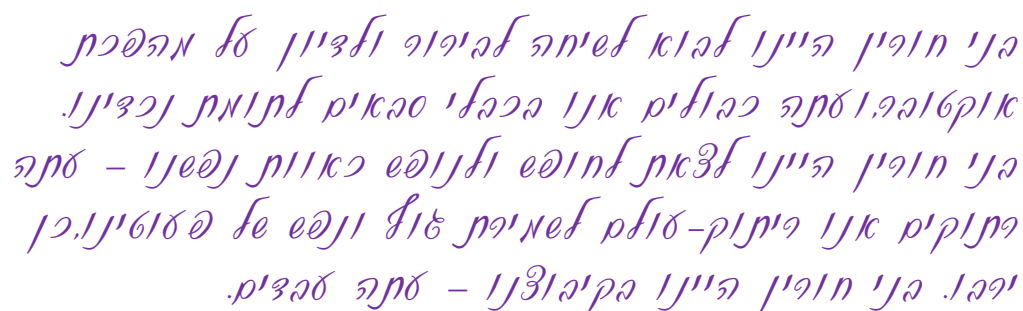 בני חורין היינו לבוא לשיחה לבירור ולדיון על מהפכת
אוקטובר,ועתה כבולים אנו בכבלי סבאים לתומת נכדינו.
בני חורין היינו לצאת לחופש ולנופש כאוות נפשנו – עתה
רתוקים אנו ריתוק-עולם לשמירת גוף ונפש של פעוטינו,כן
ירבו. בני חורין היינו בקיבוצנו – עתה עבדים.